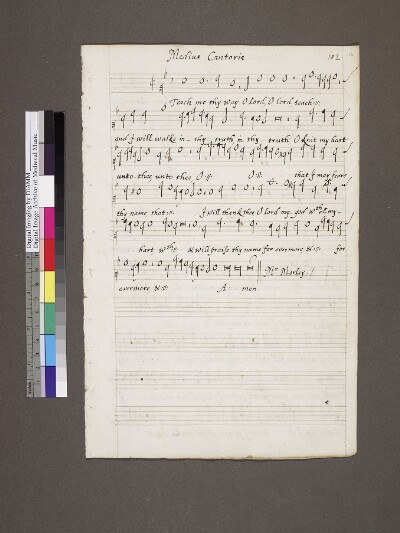 Medius Cantoris 102
Teach me thy way O lord, O lord teach :||:
and I will walke in thy truth in thy truth O knit my hart
unto thee unto thee O :||: O :||: that I may feare
thy name that :||: I will thank thee O lord my god wth al my
hart wth :||: & will praise thy name for evermore & :||: for
Mr Morley
evermore & :||: A men
Digital Imaging by DIAMM
Digital Image Archive of Medieval Music